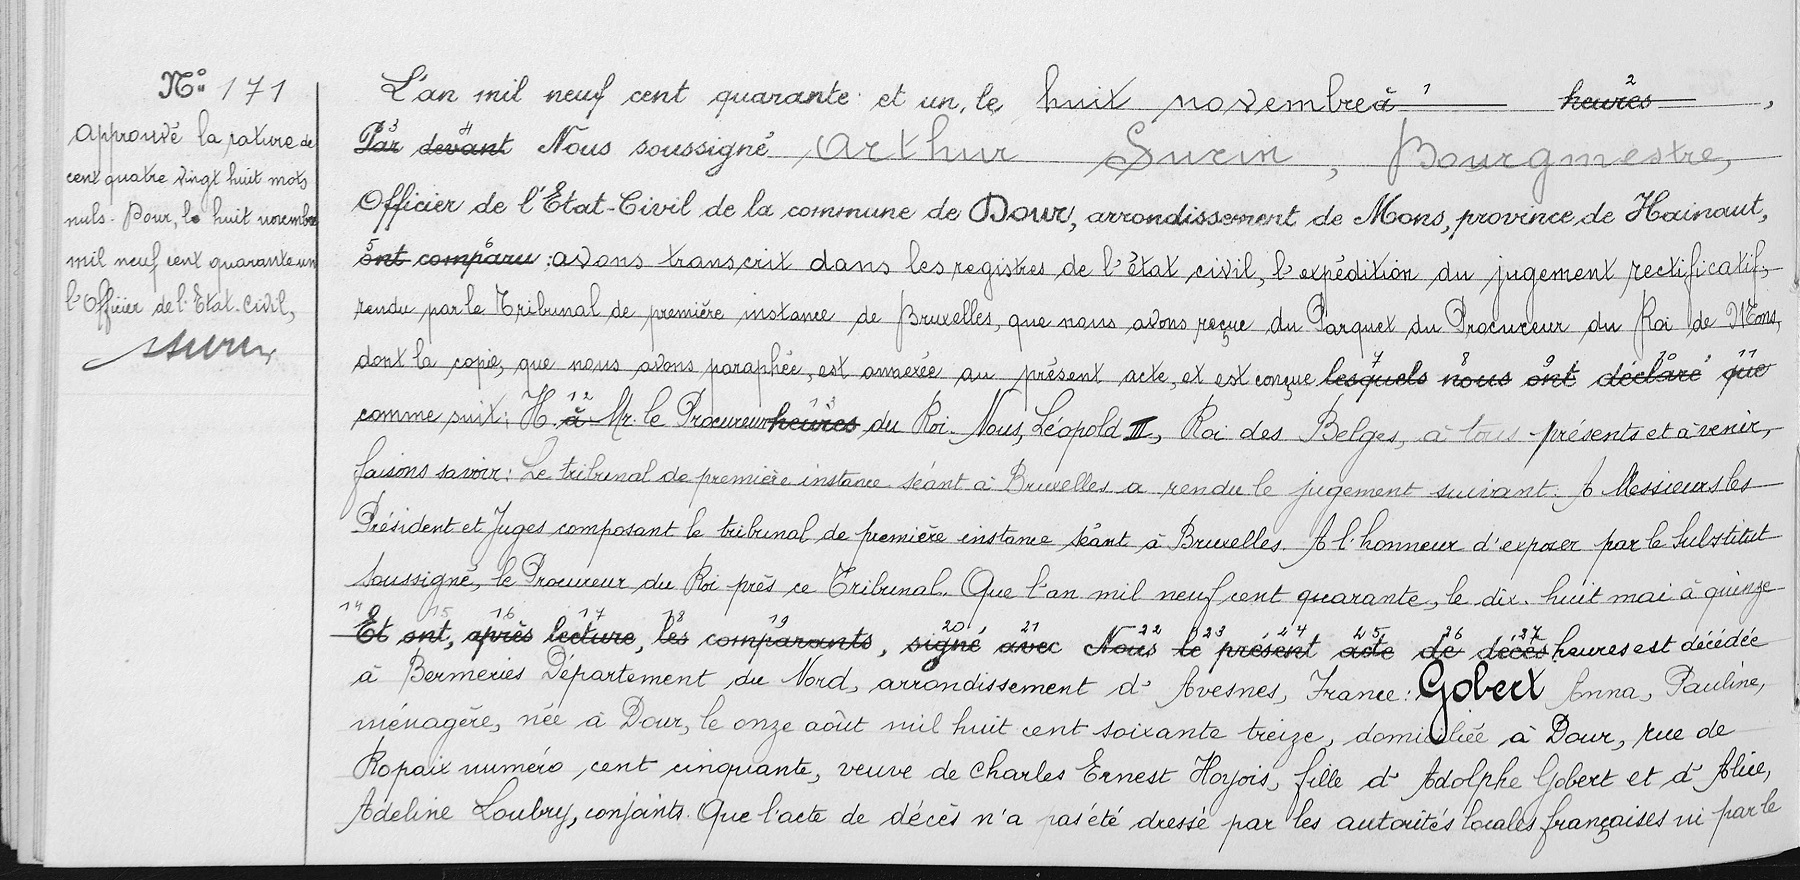 No 171
approuvé la rature de
cent quatre vingt huit mots
nuls. Dour, le huit novembre
mil neuf cent quarante un
l'Officier de l'Etat-Civil,
L'an mil neuf cent quarante et un, le huit novembre à 1 heures 2,
Par 3 devant 4 Nous soussigné Arthur Surin, Bourgmestre,
Officier de l'Etat-Civil de la commune de Dour, arrondissement de Mons, province de Hainaut,
ont 5 comparu 6 : avons transcrit dans les registres de l'état civil, l'expédition du jugement rectificatif,
rendu par le Tribunal de première instance de Bruxelles, que nous avons reçue du Parquet du Procureur du Roi de Mons,
dont la copie, que nous avons paraphée, est annexée au présent acte, et est conçue lesquels 7 nous 8 ont 9 déclaré 10 que 11
comme suit: H. à 12 Mr. le Procureur heures 13 du Roi. Nous, Léopold III, Roi des Belges, à tous présents et à venir,
faisons savoir: Le tribunal de première instance séant à Bruxelles a rendu le jugement suivant. A Messieurs les
Président et Juges composant le tribunal de première instance séant à Bruxelles. A l'honneur d'exposer par le Substitut
soussigné, le Procureur du Roi près ce Tribunal. Que l'an mil neuf cent quarante, le dix-huit mai à quinze
Et 14 ont 15, après 16 lecture 17, les 18 comparants 19, signé 20 avec 21 Nous 22 le 23 présent 24 acte 25 de 26 décès 27 heures est décédée
à Bermeries Département du Nord, arrondissement d'Avesnes, France: Gobert Anna, Pauline,
ménagère, née à Dour, le onze août mil huit cent soixante treize, domiciliée à Dour, rue de
Ropaix numéro cent cinquante, veuve de Charles Ernest Hoyois, fille d'Adolphe Gobert et d'Alice,
Adeline Loubry, conjoints. Que l'acte de décès n'a pas été dressé par les autorités locales françaises ni par le